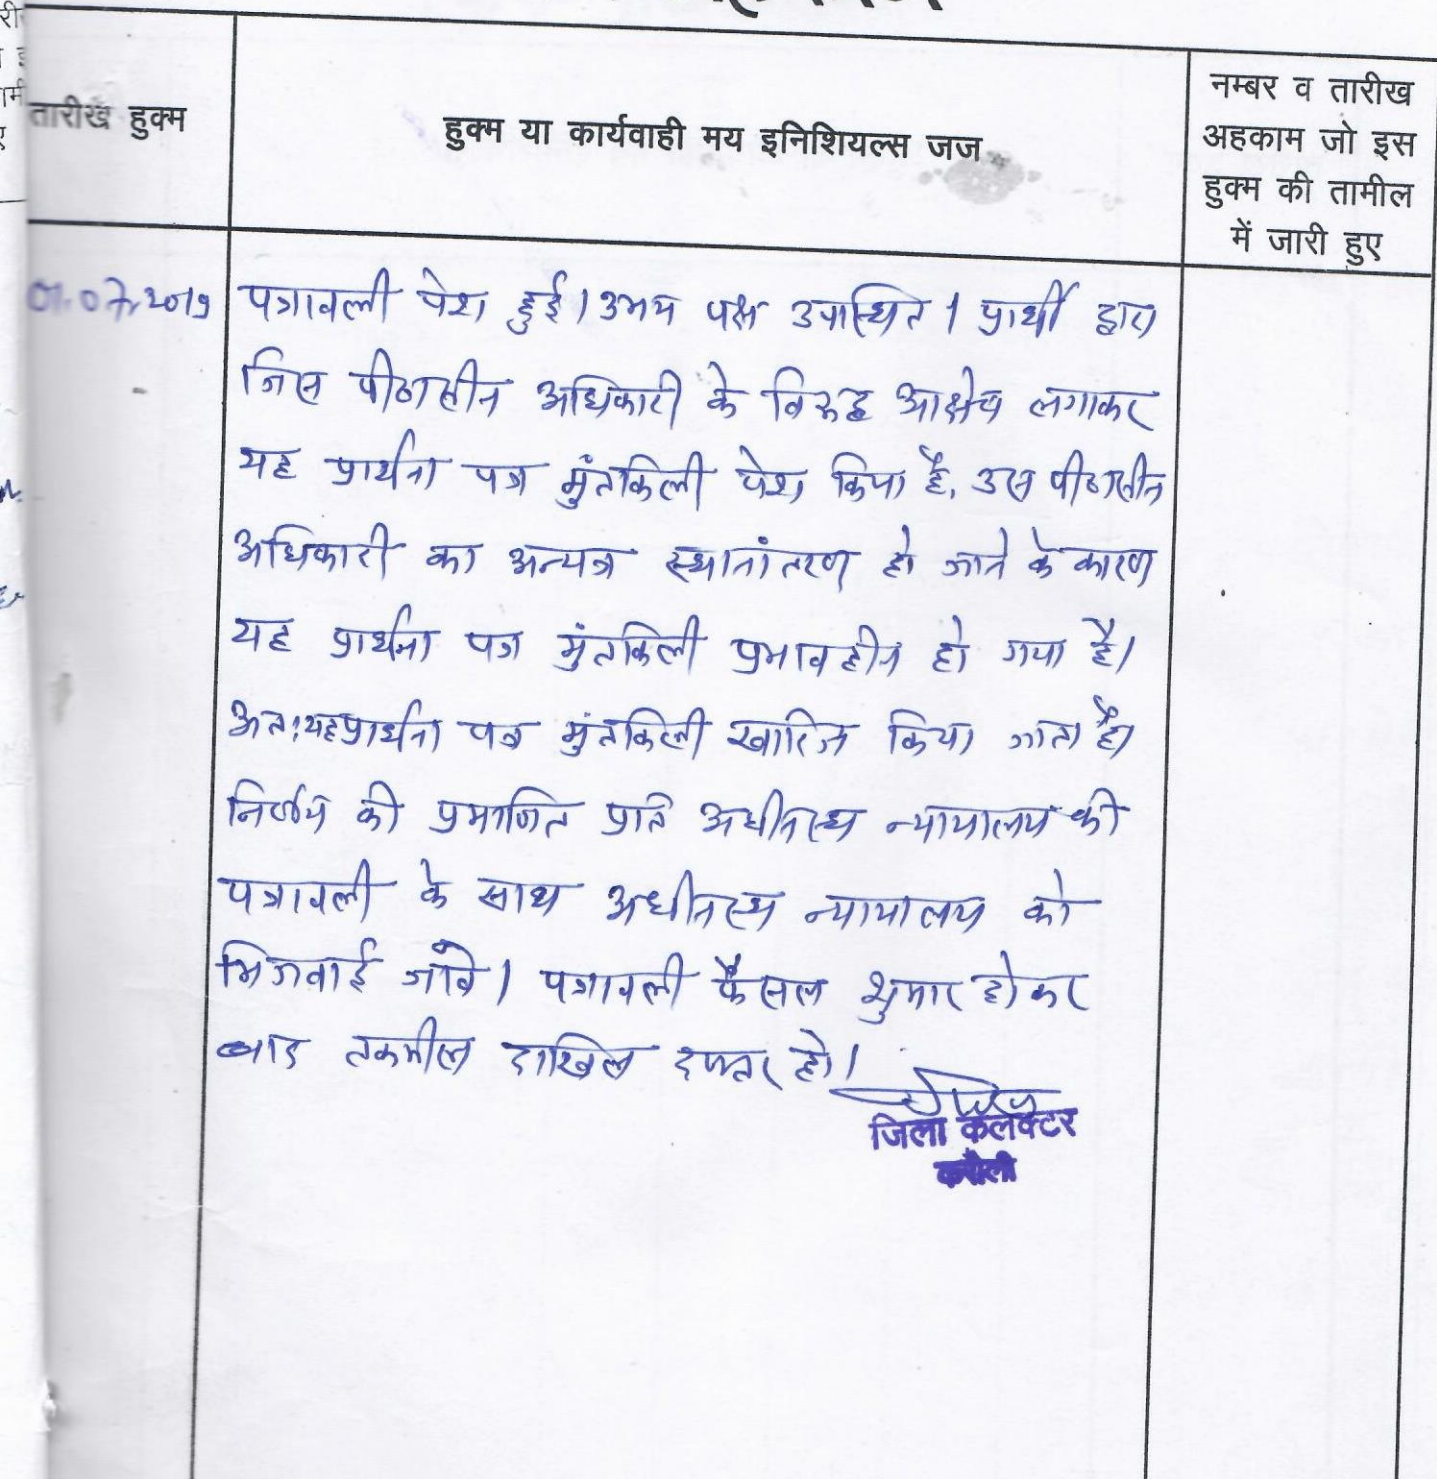 तारीख हुक्म
हुक्म या कार्यवाही मय इनिशियल्स जज
नम्बर व तारीख
अहकाम जो इस
हुक्म की तामील
में जारी हुए
01.07.2019
पत्रावली पेश हुई। उभय पक्ष उपास्थित। प्रार्थी द्वारा
जिस पीठासीन अधिकारी के विरूद्ध आक्षेप लगाकर
यह प्रार्थना पत्र मुंतकिली पेश किया है, उस पीठासीन
अधिकारी का अन्यत्र स्थानांतरण हो जाने के कारण
यह प्रार्थना पत्र मुंतकिली प्रभावहीन हो गया है।
अत: यह प्रार्थना पत्र मुंतकिली खारिज किया जाता है।
निर्णय की प्रमाणित प्रति अधीनस्थ न्यायालय की
पत्रावली के साथ अधीनस्थ न्यायालय को
भिजवाई जावे। पत्रावली फैसल शुमार होकर
बाद तकमील दाखिल दफ्तर हो।
जिला कलेक्टर
करौली